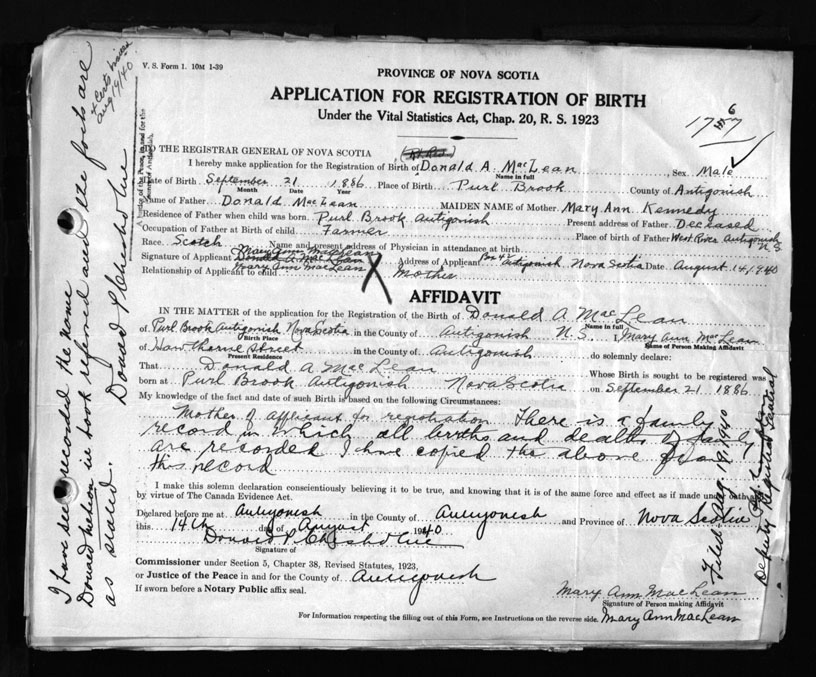 V. S. Form 1. 10M 1-39
PROVINCE OF NOVA SCOTIA
APPLICATION FOR REGISTRATION OF BIRTH
Under the Vital Statistics Act, Chap. 20, R. S. 1923
6
17
TO THE REGISTRAR GENERAL OF NOVA SCOTIA
I hereby make application for the Registration of Birth of Donald A. MacLean Sex Male
Name in full
Date of Birth September 21 1886 Place of Birth Purl Brook County of Antigonish
Month Date Year
Name of Father Donald MacLean MAIDEN NAME of Mother Mary Ann Kennedy
Residence of Father when child was born. Purl Brook Antigonish Present address of Father Deceased
Occupation of Father at Birth of child Farmer Place of birth of Father West River Antigonish N S
Race. Scotch Name and present address of Physician in attendance at birth
Mary Ann MacLean
Signature of Applicant Donald A MacLean Address of Applicant Box 42 Antigonish Nova Scotia Date August 14, 1940
Mary Ann MacLean
Relationship of Applicant to child Mother
AFFIDAVIT
IN THE MATTER of the application for the Registration of the Birth of Donald A MacLean
Name in full
of Purl Brook Antigonish Nova Scotia in the County of Antigonish N.S. I, Mary Ann McLean
Birth Place Name of Person Making Affidavit
of Hawthorne Street in the County of Antigonish do solemnly declare:
Present Residence
That Donald A MacLean Whose Birth is sought to be registered was
born at Purl Brook Antigonish Nova Scotia on September 21 1886
My knowledge of the fact and date of such Birth is based on the following Circumstances:
Mother of applicant for registration There is a family
record in which all births and deaths of family
are recorded I have copied the above from
this record
I make this solemn declaration conscientiously believing it to be true, and knowing that it is of the same force and effect as if made under oath
by virtue of The Canada Evidence Act.
Declared before me at Antigonish in the County of Antigonish and Province of Nova Scotia
this 14th day of August 1940
Donald P Chisholm
Signature of
Commissioner under Section 5, Chapter 38, Revised Statutes, 1923,
or Justice of the Peace in and for the County of Antigonish
If sworn before a Notary Public affix seal.
Mary Ann MacLean
Signature of Person making Affidavit
For Information respecting the filling out of this Form, see Instructions on the reverse side. Mary Ann MacLean
I have seen recorded the name
Donald in book referred and the facts are
as stated.
Donald P Chisholm
Aug 19/40
of the Peace, in and for the
Filed Aug 19, 1940
Deputy Registrar General